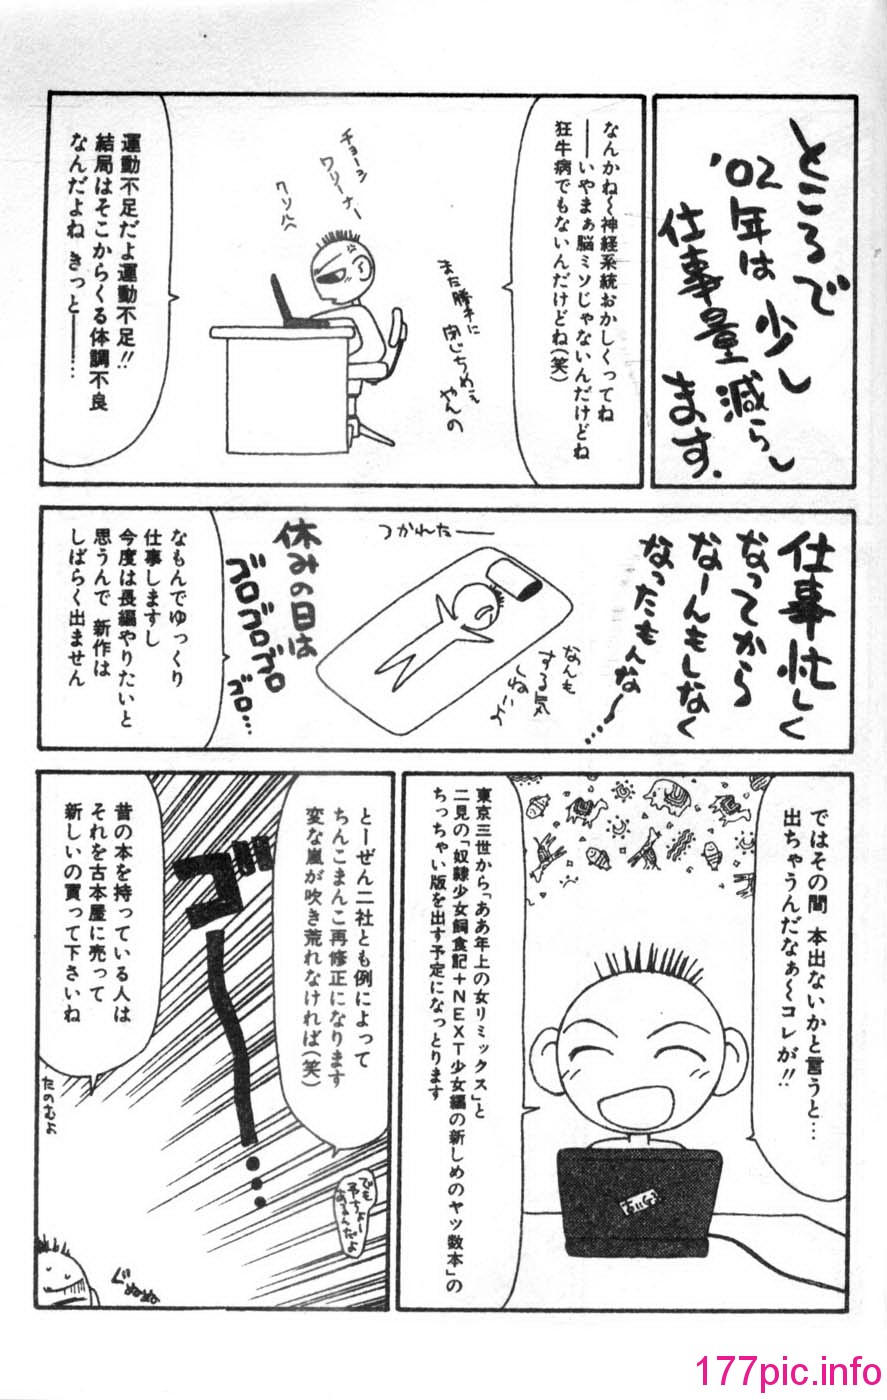 ところで
'02年は少し
仕事量減らし
ます.
なんかね〜神経系統おかしくってね
――いやまぁ脳ミソじゃないんだけどね
狂牛病でもないんだけどね(笑)
チョーシ
ワリーナー
クソルヘ
また勝手に
閉じちめぇ
やんの
運動不足だよ運動不足!!
結局はそこからくる体調不良
なんだよね きっと――…
仕事忙しく
なってから
なーんもしなく
なったもんな〜…
つかれたー
なんも
する気
しねーよ
休みの日は
ゴロゴロゴロ
ゴロ…
なもんでゆっくり
仕事しますし
今度は長編やりたいと
思うんで 新作は
しばらく出ません
ではその間 本出ないかと言うと…
出ちゃうんだなぁ〜コレが!!
東京三世から「ああ年上の女リミックス」と
二見の「奴隷少女飼食記+NEXT少女編の新しめのヤツ数本」の
ちっちゃい版を出す予定になっとります
とーぜん二社とも例によって
ちんこまんこ再修正になります
変な嵐が吹き荒れなければ(笑)
ゴー…
でも
予ちょー
あるんだよ
昔の本を持っている人は
それを古本屋に売って
新しいの買って下さいね
たのむよ
ぐぬぬぬ
177pic.info